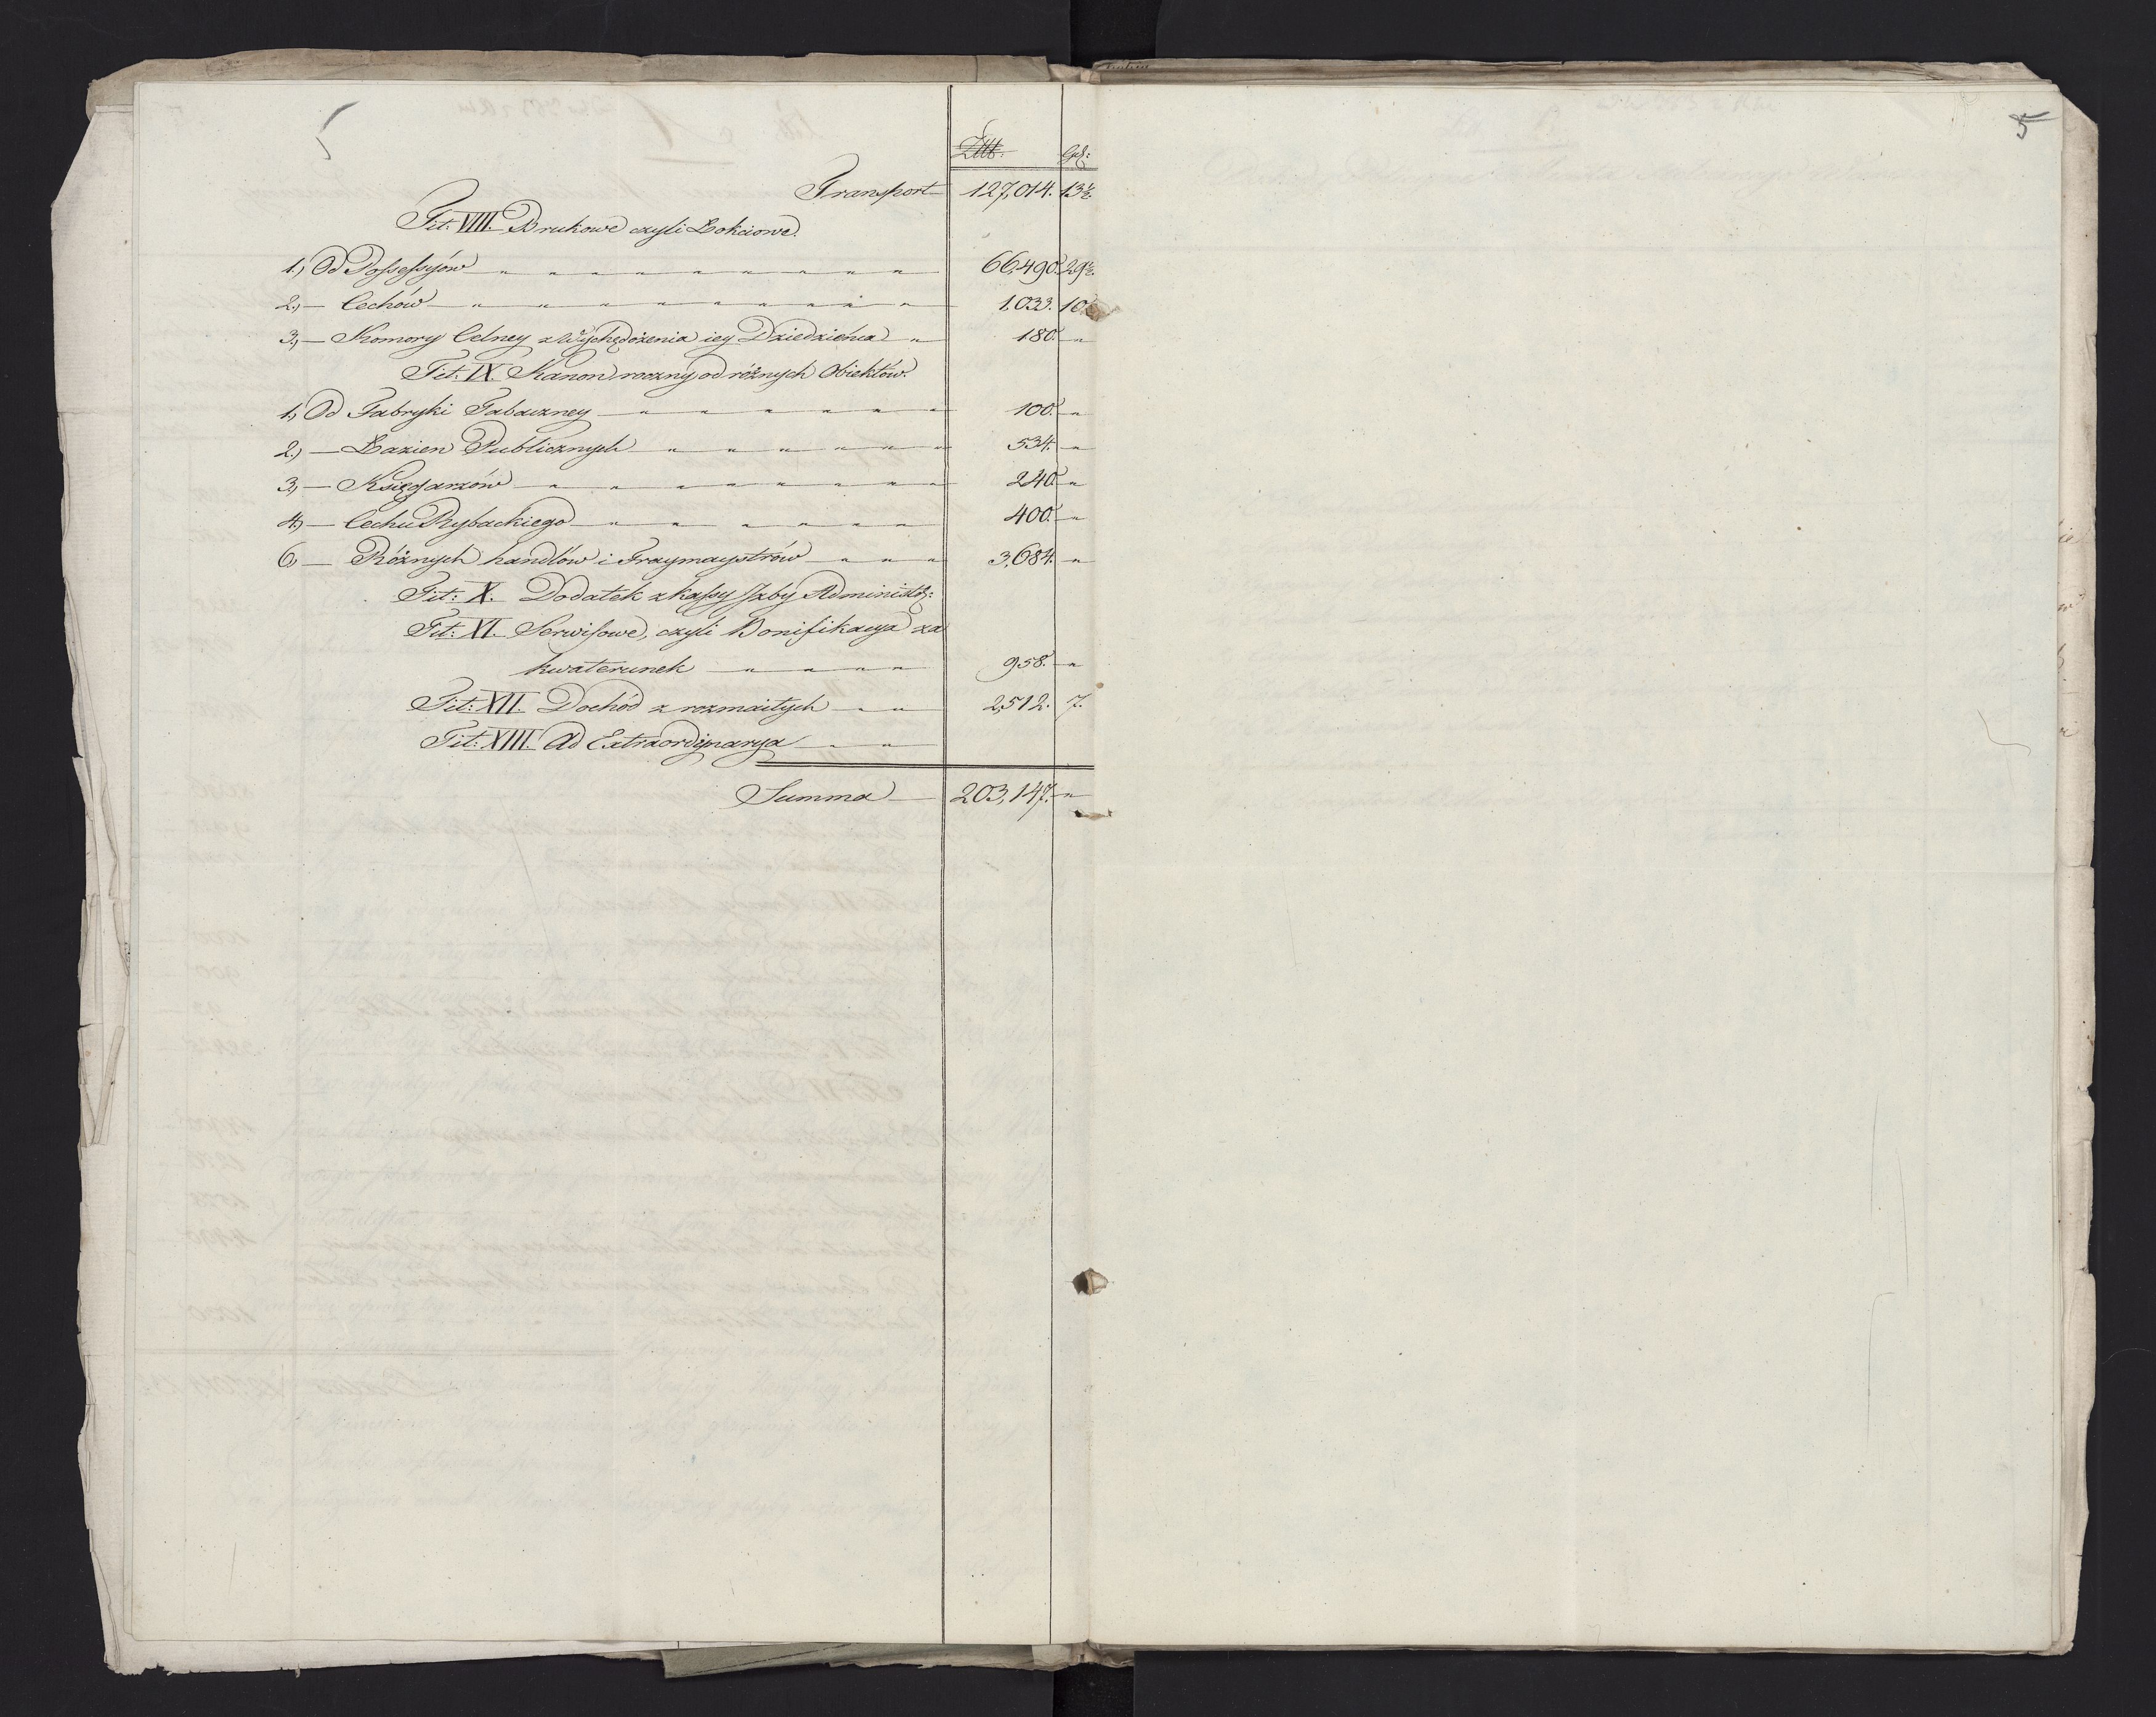 5
Złt: Gr:
Transport 127,014. 13½.
Tit: VIII. Brukowe czyli Łokciowe.
1.) Od Possessyów — " — " — " — " — " — " — " — " 66,490. 29½.
2.) — Cechów — " — " — " — " — " — " — " — " 1,033. 10.
3.) — Komory Celney z Wychędożenia iey Dziedzieńca — " 180. — "
Tit: IX. Kanon roczny od różnych Obiektów.
1.) Od Fabryki Tabaczney — " — " — " — " — " — " 100. — "
2.) — Łazien Publicznych — " — " — " — " — " — " 534. — "
3.) — Księgarzów — " — " — " — " — " — " — " 240. — "
4.) — Cechu Rybackiego — " — " — " — " — " — " 400. — "
6.) — Różnych handlów i Fraymaystrów — " — " — " 3,684. — "
Tit: X. Dodatek z kassy Izby Administr:
Tit: XI. Serwisowe, czyli Bonifikacya za
kwaterunek — " — " — " — " 958. — "
Tit: XII. Dochód z rozmaitych — " — " 2,512. 7.
Tit: XIII. Ad Extraordynarya — " — "
Summa — 203,147. — "